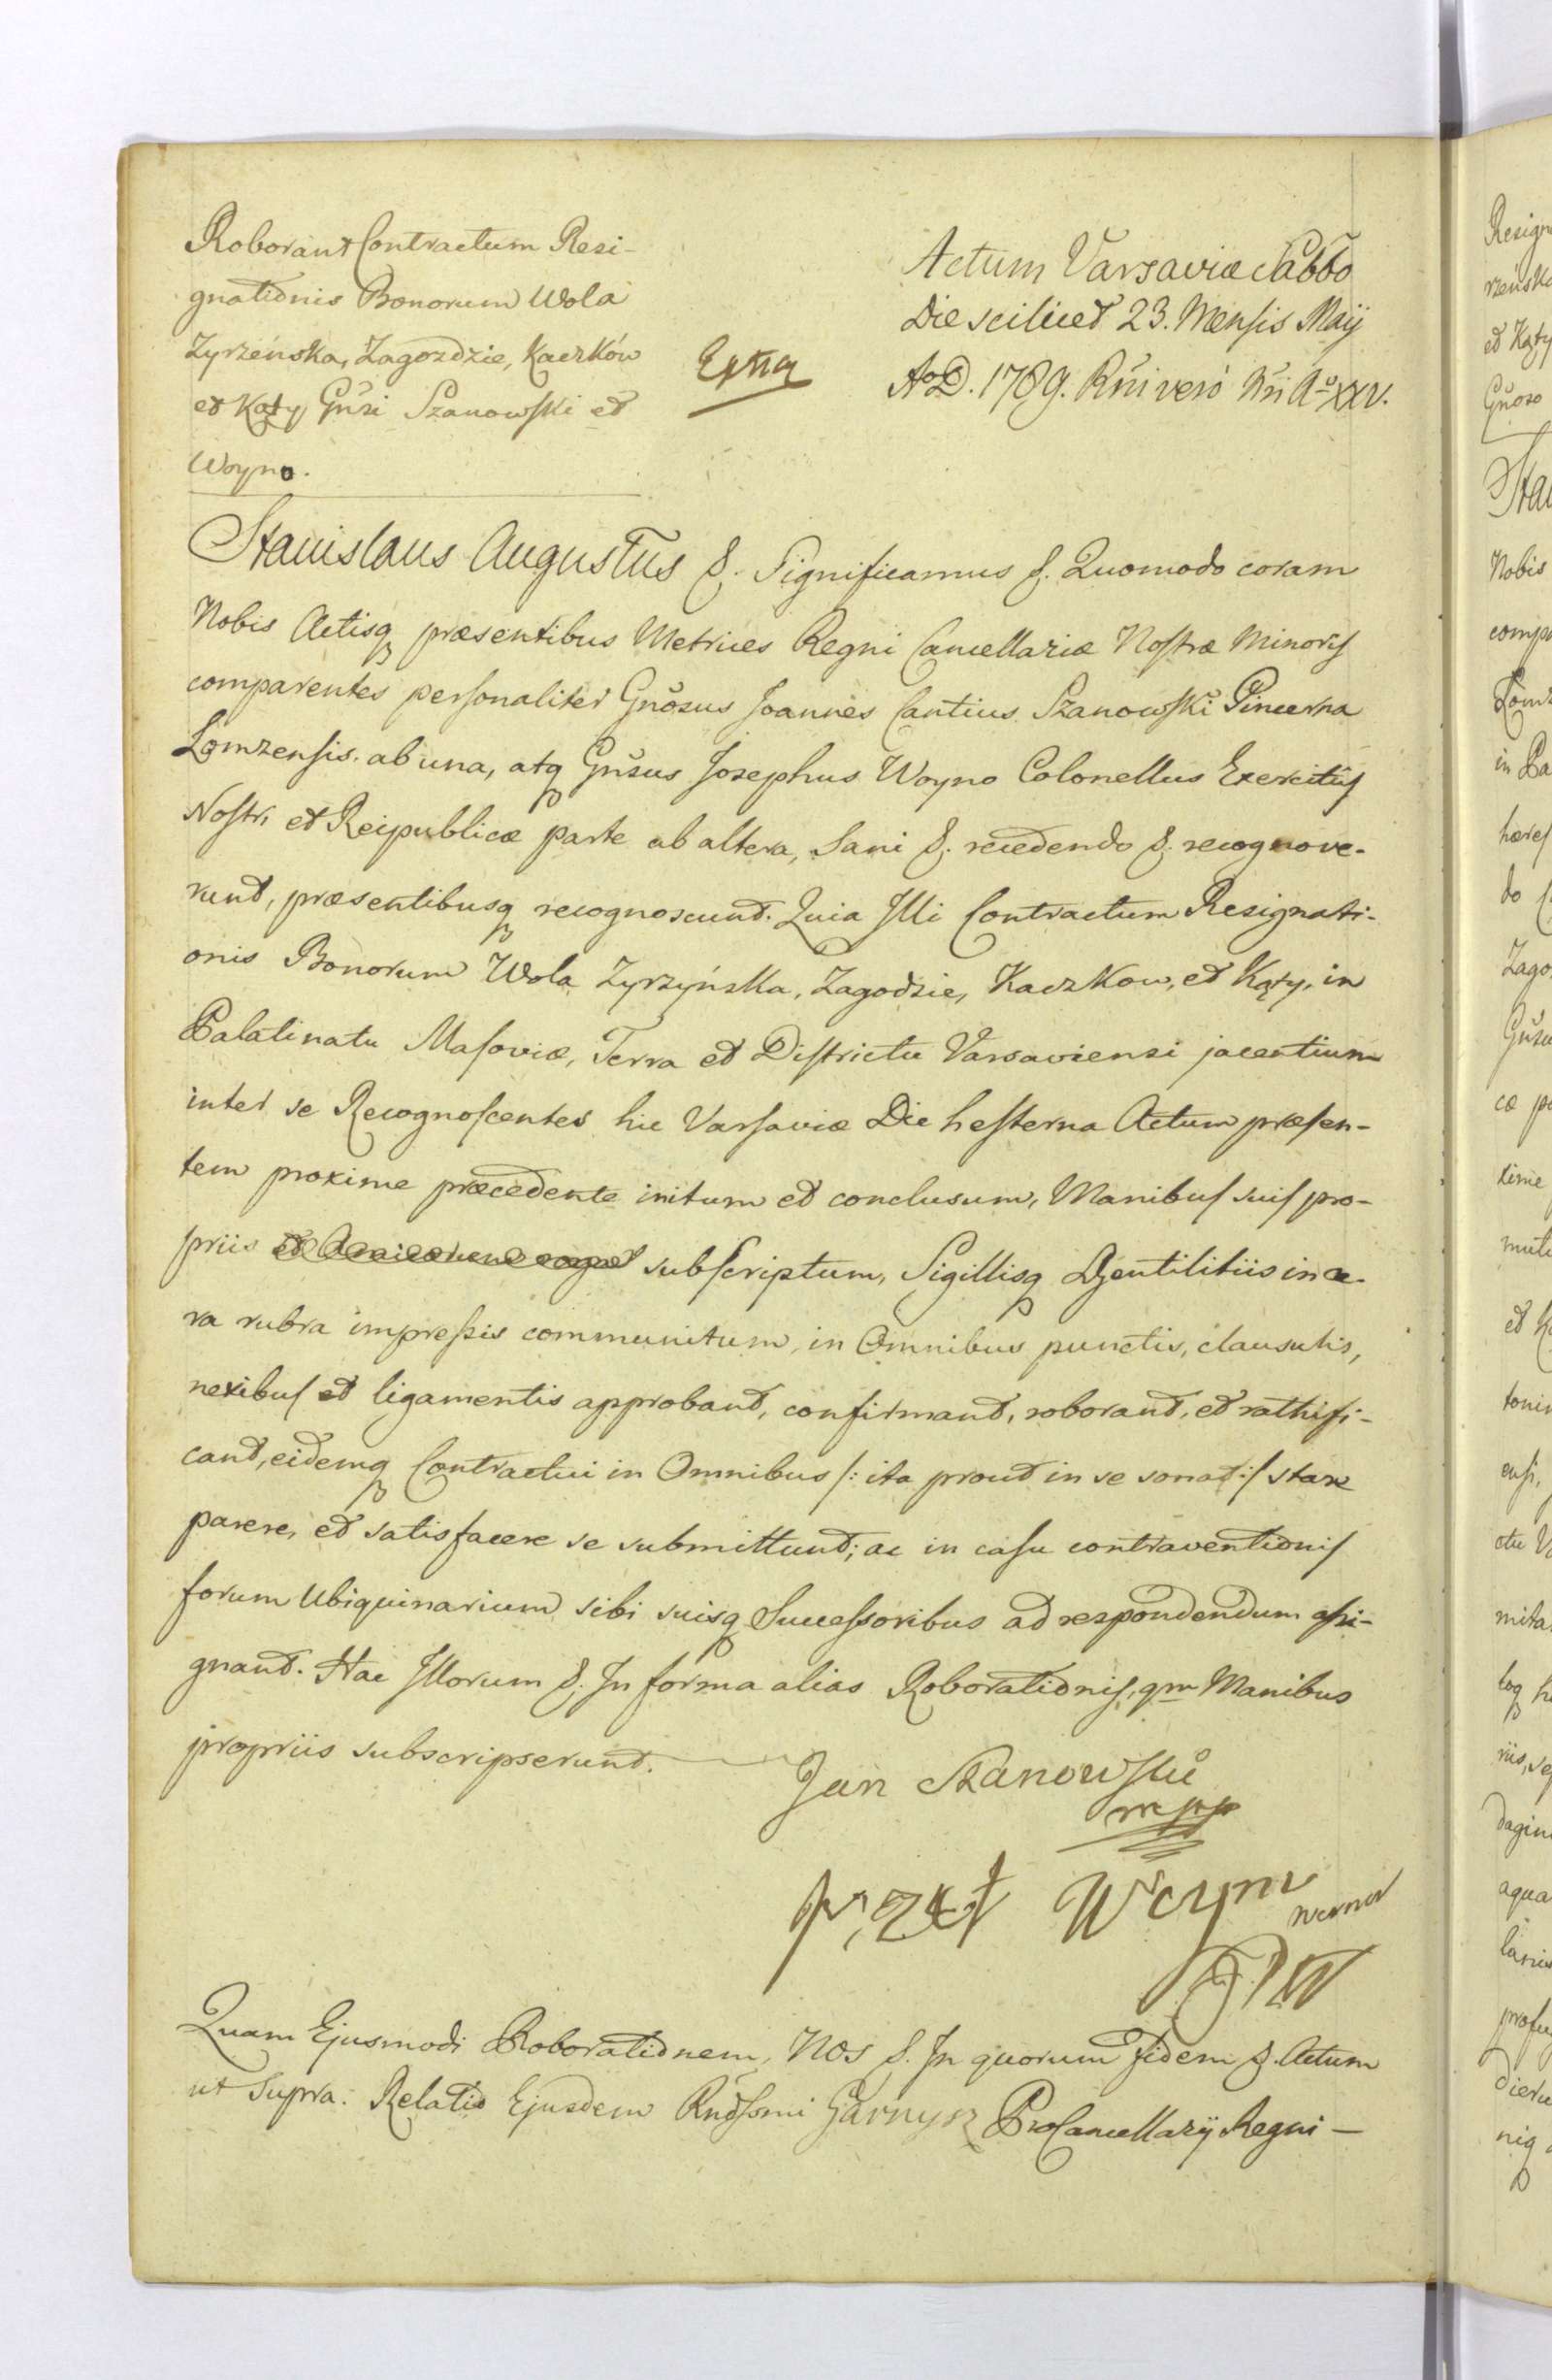 Roborant Contractum Resi-
gnationis Bonorum Wola
Zyrzeńska, Zagozdzie, Kaczków
et Kąty Gnsi Szanowski et
Woyno.
Extra
Actum Varsaviæ Sabbo
Die scilicet 23. Mensis Maij
AoD. 1789. Rni vero Nri Ao XXV.
Stanislaus Augustus &. Significamus &. Quomodo coram
Nobis Actisq præsentibus Metrices Regni Cancellariæ Nostræ Minoris
comparentes personaliter Gnosus Joannes Cantius Szanowski Pincerna
Lomzensis. ab una, atq Gnsus Josephus Woyno Colonellus Exercitûs
Nostri et Reipublicæ parte ab altera, Sani &. recedendo &. recognove-
runt, præsentibusq recognoscunt. Quia Illi Contractum Resignati-
onis Bonorum Wola Zyrzyńska, Zagodzie, Kaczkow, et Kąty, in
Palatinatu Masoviæ, Terra et Districtu Varsaviensi jacentium
inter se Recognoscentes hic Varsaviæ Die hesterna Actum præsen-
tem proxime præcedente initum et conclusum, Manibus suis pro-
priis subscriptum, Sigillisq Gentilitiis in ce-
ra rubra impressis communitum, in Omnibus punctis, clausulis,
nexibus et ligamentis approbant, confirmant, roborant, et rathifi-
cant, eidemq Contractui in Omnibus /: ita prout in se sonat :/ stare
parere, et satisfacere se submittunt; ac in casu contraventionis
forum Ubiquinarium sibi suisq Successoribus ad respondendum assi-
gnant. Hac Illorum &. In forma alias Roborationis, qm Manibus
propriis subscripserunt.
Jan Szanowski
mpp
Józef Woyno
Quam Ejusmodi Roborationem, Nos &. In quorum fidem &. Actum
ut Supra. Relatio Ejusdem Rndssmi Garnysz ProCancellarij Regni —